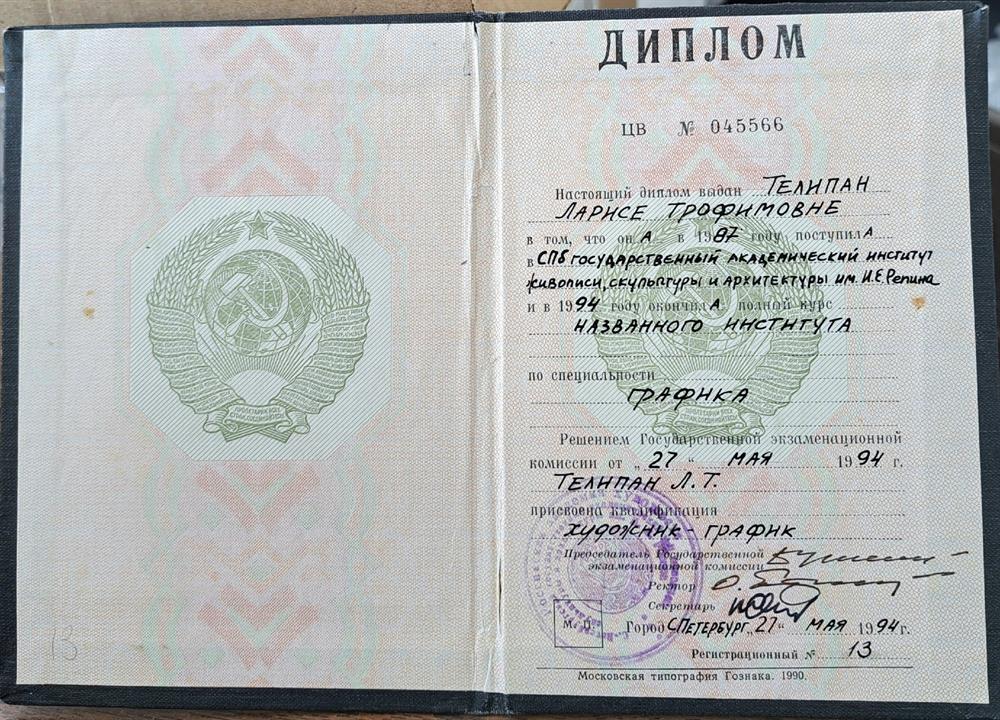 ДИПЛОМ
ЦВ № 045566
Настоящий диплом выдан ТЕЛИПАН
ЛАРИСЕ ТРОФИМОВНЕ
в том, что онА в 1987 году поступилА
в СПб ГОСУДАРСТВЕННЫЙ АКАДЕМИЧЕСКИЙ ИНСТИТУТ
живописи, скульптуры и архитектуры им. И.Е. Репина
и в 1994 году окончилА полный курс
НАЗВАННОГО ИНСТИТУТА
по специальности
ГРАФИКА
Решением Государственной экзаменационной
комиссии от „27“ МАЯ 1994 г.
ТЕЛИПАН Л.Т.
присвоена квалификация
ХУДОЖНИК-ГРАФИК
Председатель Государственной
экзаменационной комиссии
Ректор
Секретарь
М. П.
Город С.ПЕТЕРБУРГ „27“ МАЯ 1994 г.
Регистрационный № 13
Московская типография Гознака. 1990.
13